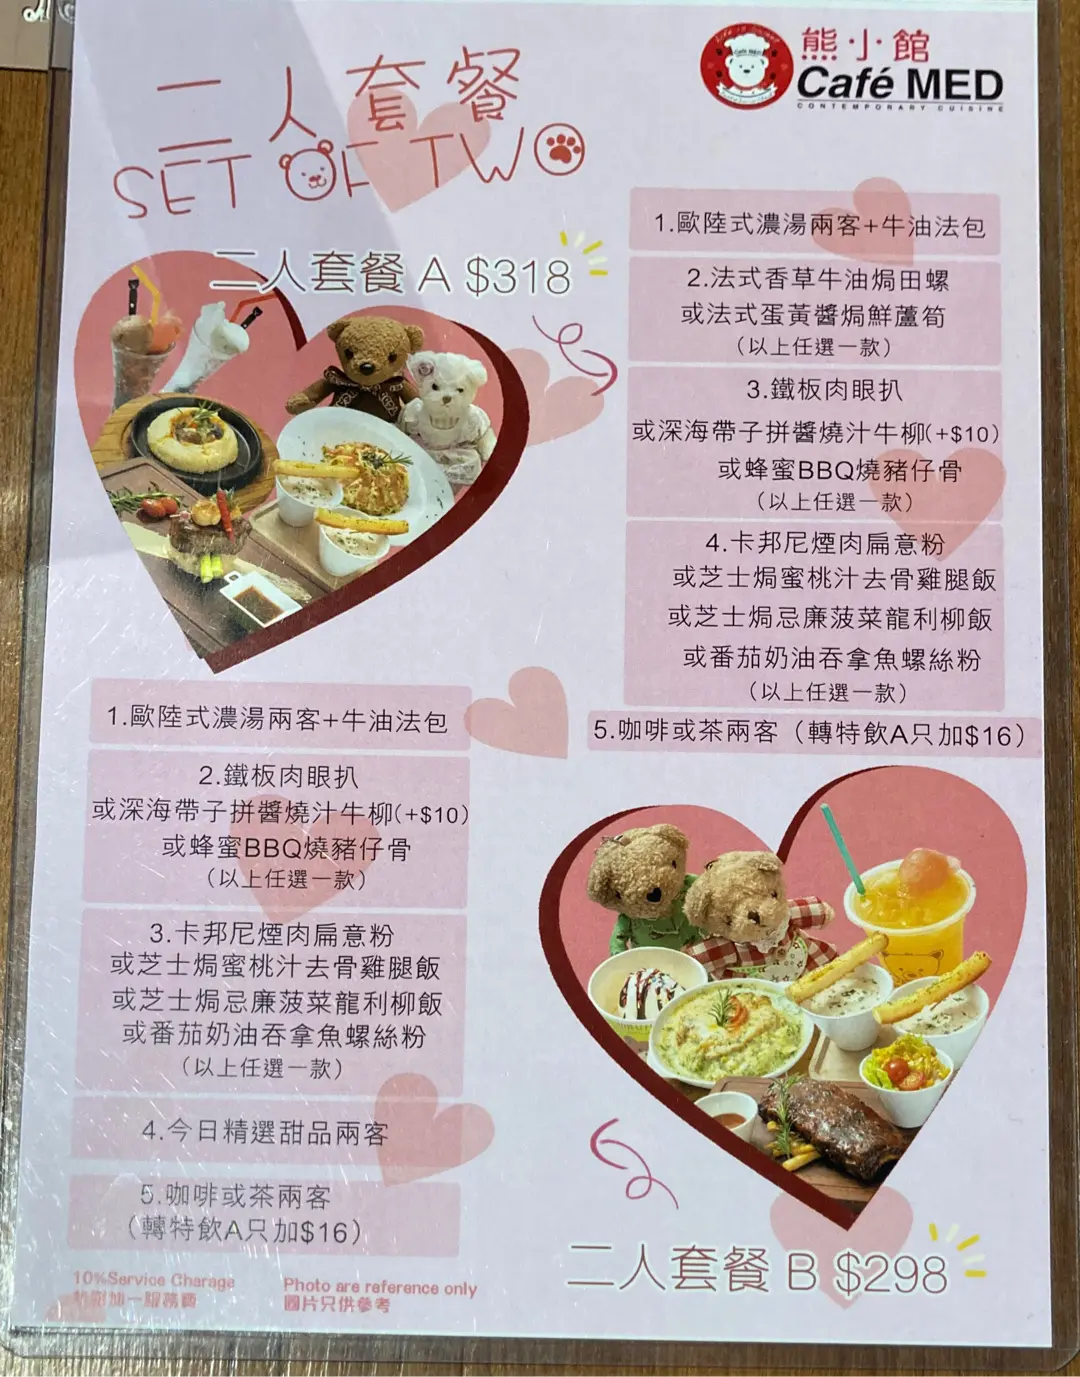 二人套餐
SET OF TWO
熊·小館
Café MED
CONTEMPORARY CUISINE
二人套餐 A $318
1.歐陸式濃湯兩客+牛油法包
2.法式香草牛油焗田螺
或法式蛋黃醬焗鮮蘆筍
(以上任選一款)
3.鐵板肉眼扒
或深海帶子拼醬燒汁牛柳(+$10)
或蜂蜜BBQ燒豬仔骨
(以上任選一款)
4.卡邦尼煙肉扁意粉
或芝士焗蜜桃汁去骨雞腿飯
或芝士焗忌廉菠菜龍利柳飯
或番茄奶油吞拿魚螺絲粉
(以上任選一款)
5.咖啡或茶兩客（轉特飲A只加$16）
1.歐陸式濃湯兩客+牛油法包
2.鐵板肉眼扒
或深海帶子拼醬燒汁牛柳(+$10)
或蜂蜜BBQ燒豬仔骨
(以上任選一款)
3.卡邦尼煙肉扁意粉
或芝士焗蜜桃汁去骨雞腿飯
或芝士焗忌廉菠菜龍利柳飯
或番茄奶油吞拿魚螺絲粉
(以上任選一款)
4.今日精選甜品兩客
5.咖啡或茶兩客
（轉特飲A只加$16）
二人套餐 B $298
10%Service Charage
另附加一服務費
Photo are reference only
圖片只供參考